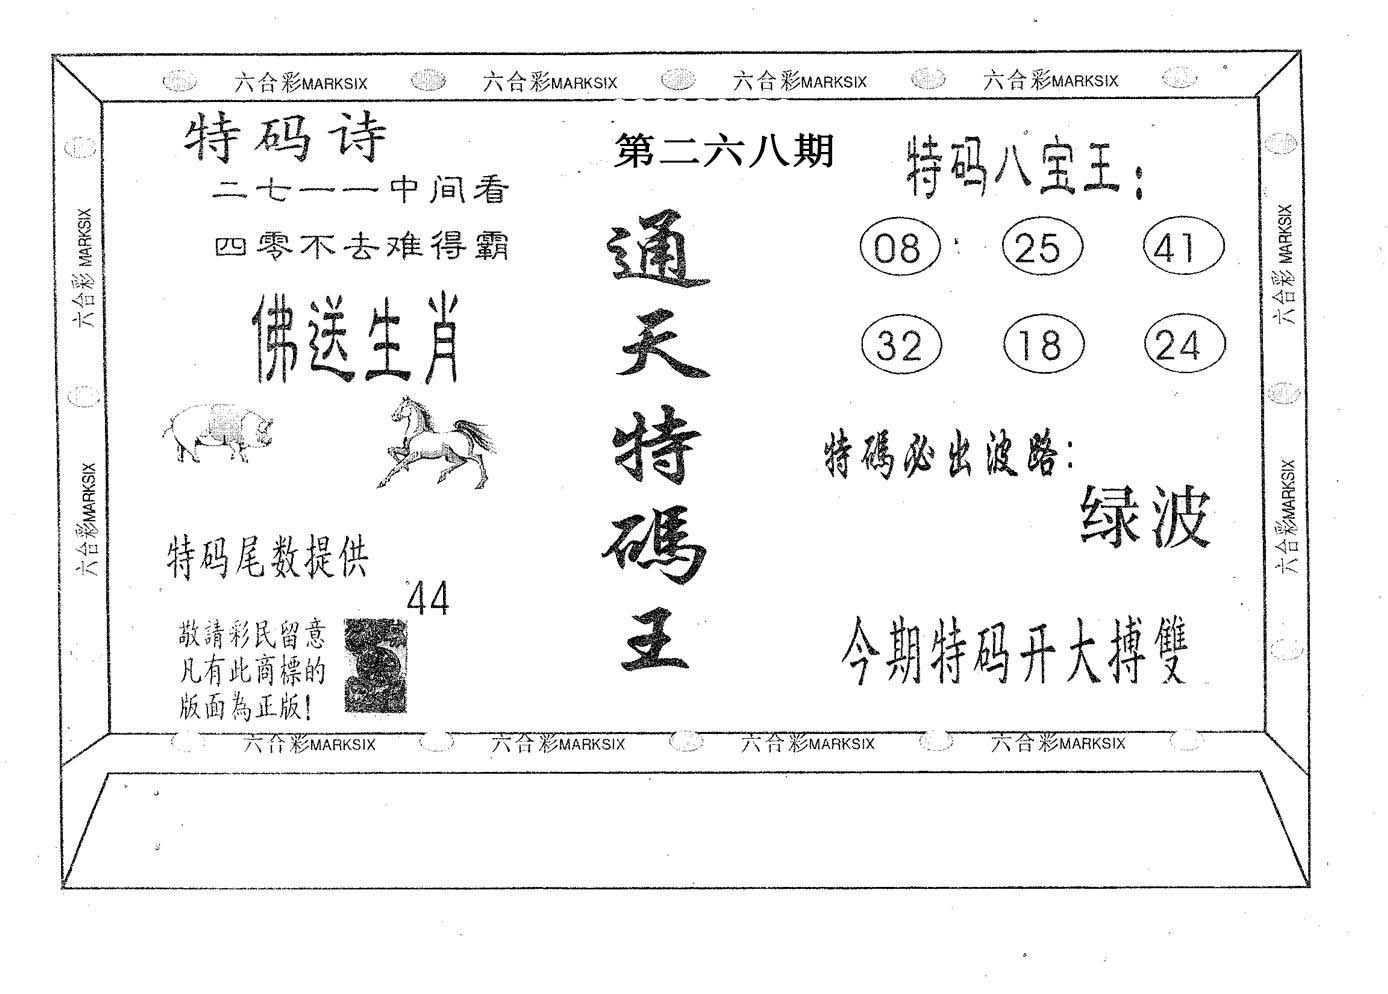 六合彩MARKSIX 六合彩MARKSIX 六合彩MARKSIX 六合彩MARKSIX
六合彩 MARKSIX
六合彩MARKSIX
特码诗
二七一一中间看
四零不去难得霸
佛送生肖
特码尾数提供
44
敬請彩民留意
凡有此商標的
版面為正版!
第二六八期
通天特碼王
特码八宝王:
08 25 41
32 18 24
特碼必出波路:
绿波
今期特码开大搏雙
六合彩 MARKSIX
六合彩MARKSIX
六合彩MARKSIX 六合彩MARKSIX 六合彩MARKSIX 六合彩MARKSIX